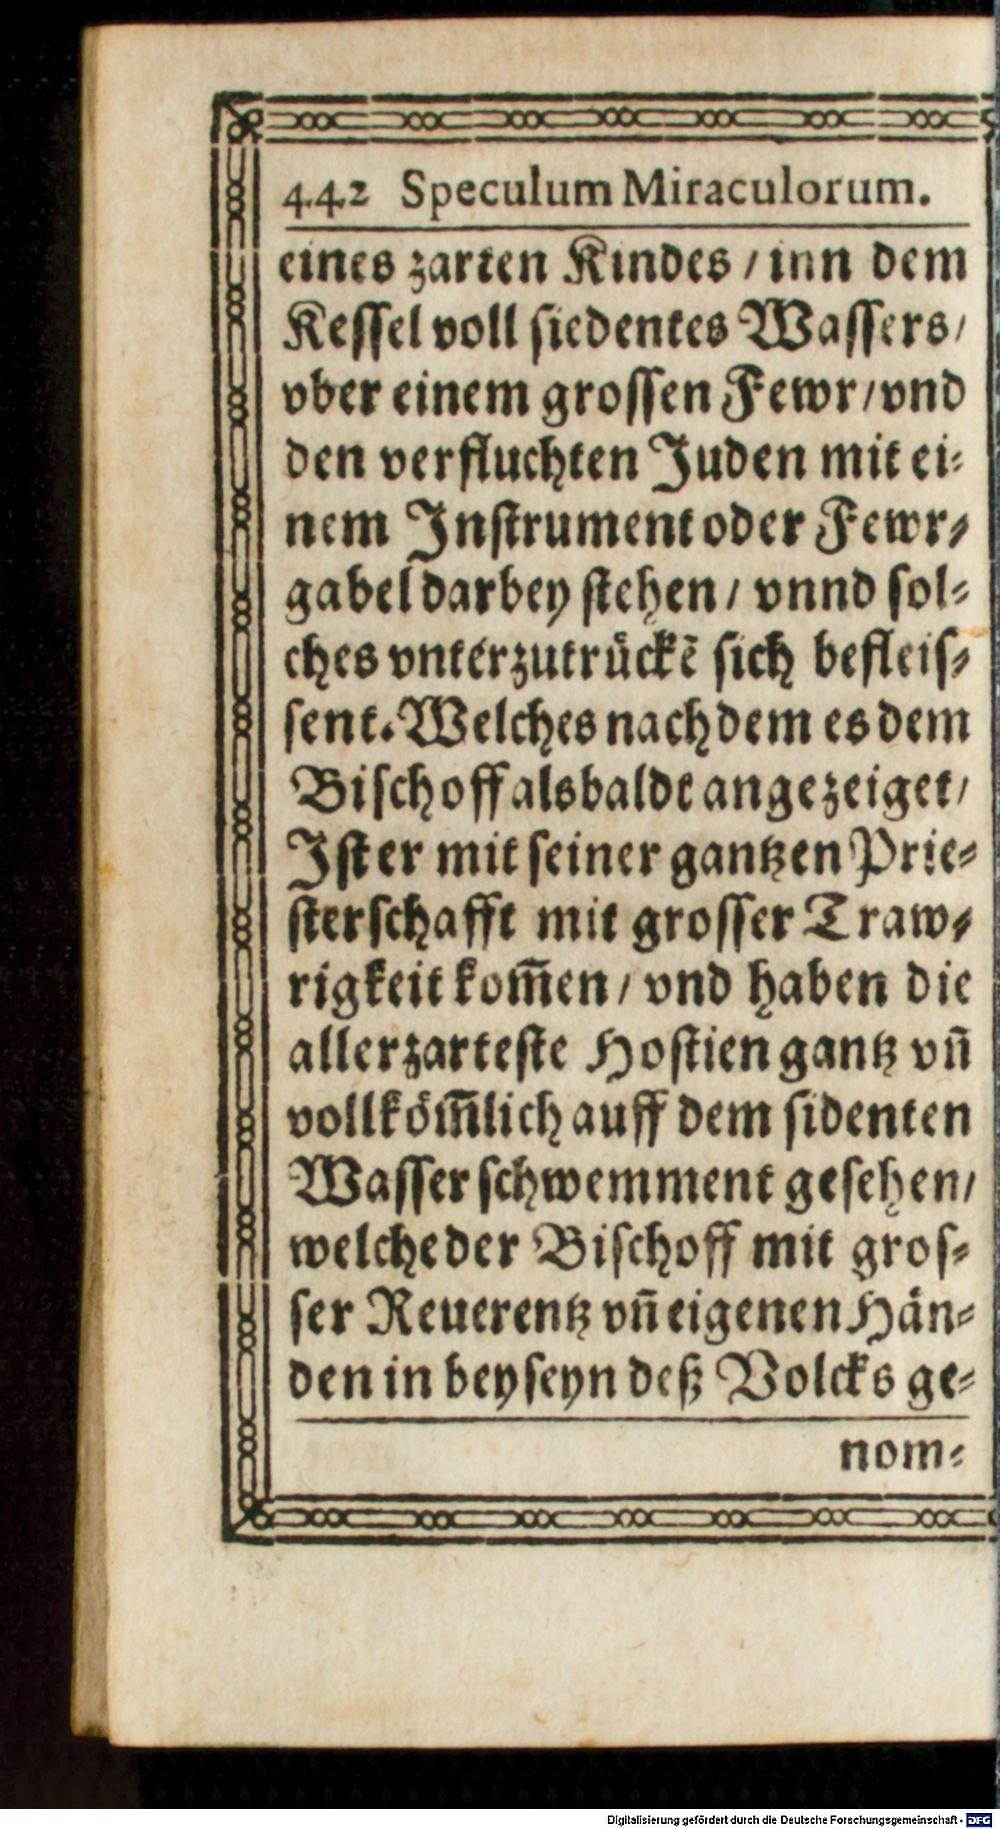 442 Speculum Miraculorum.
eines zarten Kindes / inn dem
Kessel voll siedentes Wassers /
vber einem grossen Fewr / vnd
den verfluchten Juden mit ei-
nem Instrument oder Fewr-
gabel darbey stehen / vnnd sol-
ches vnterzutrückē sich befleis-
sent. Welches nach dem es dem
Bischoff alsbaldt angezeiget /
Ist er mit seiner gantzen Prie-
sterschafft mit grosser Traw-
rigkeit kom̃en / vnd haben die
allerzarteste Hostien gantz vñ
vollköm̃lich auff dem sidenten
Wasser schwemment gesehen /
welche der Bischoff mit gros-
ser Reuerentz vñ eigenen Hän-
den in beyseyn deß Volcks ge-
nom-
Digitalisierung gefördert durch die Deutsche Forschungsgemeinschaft - DFG